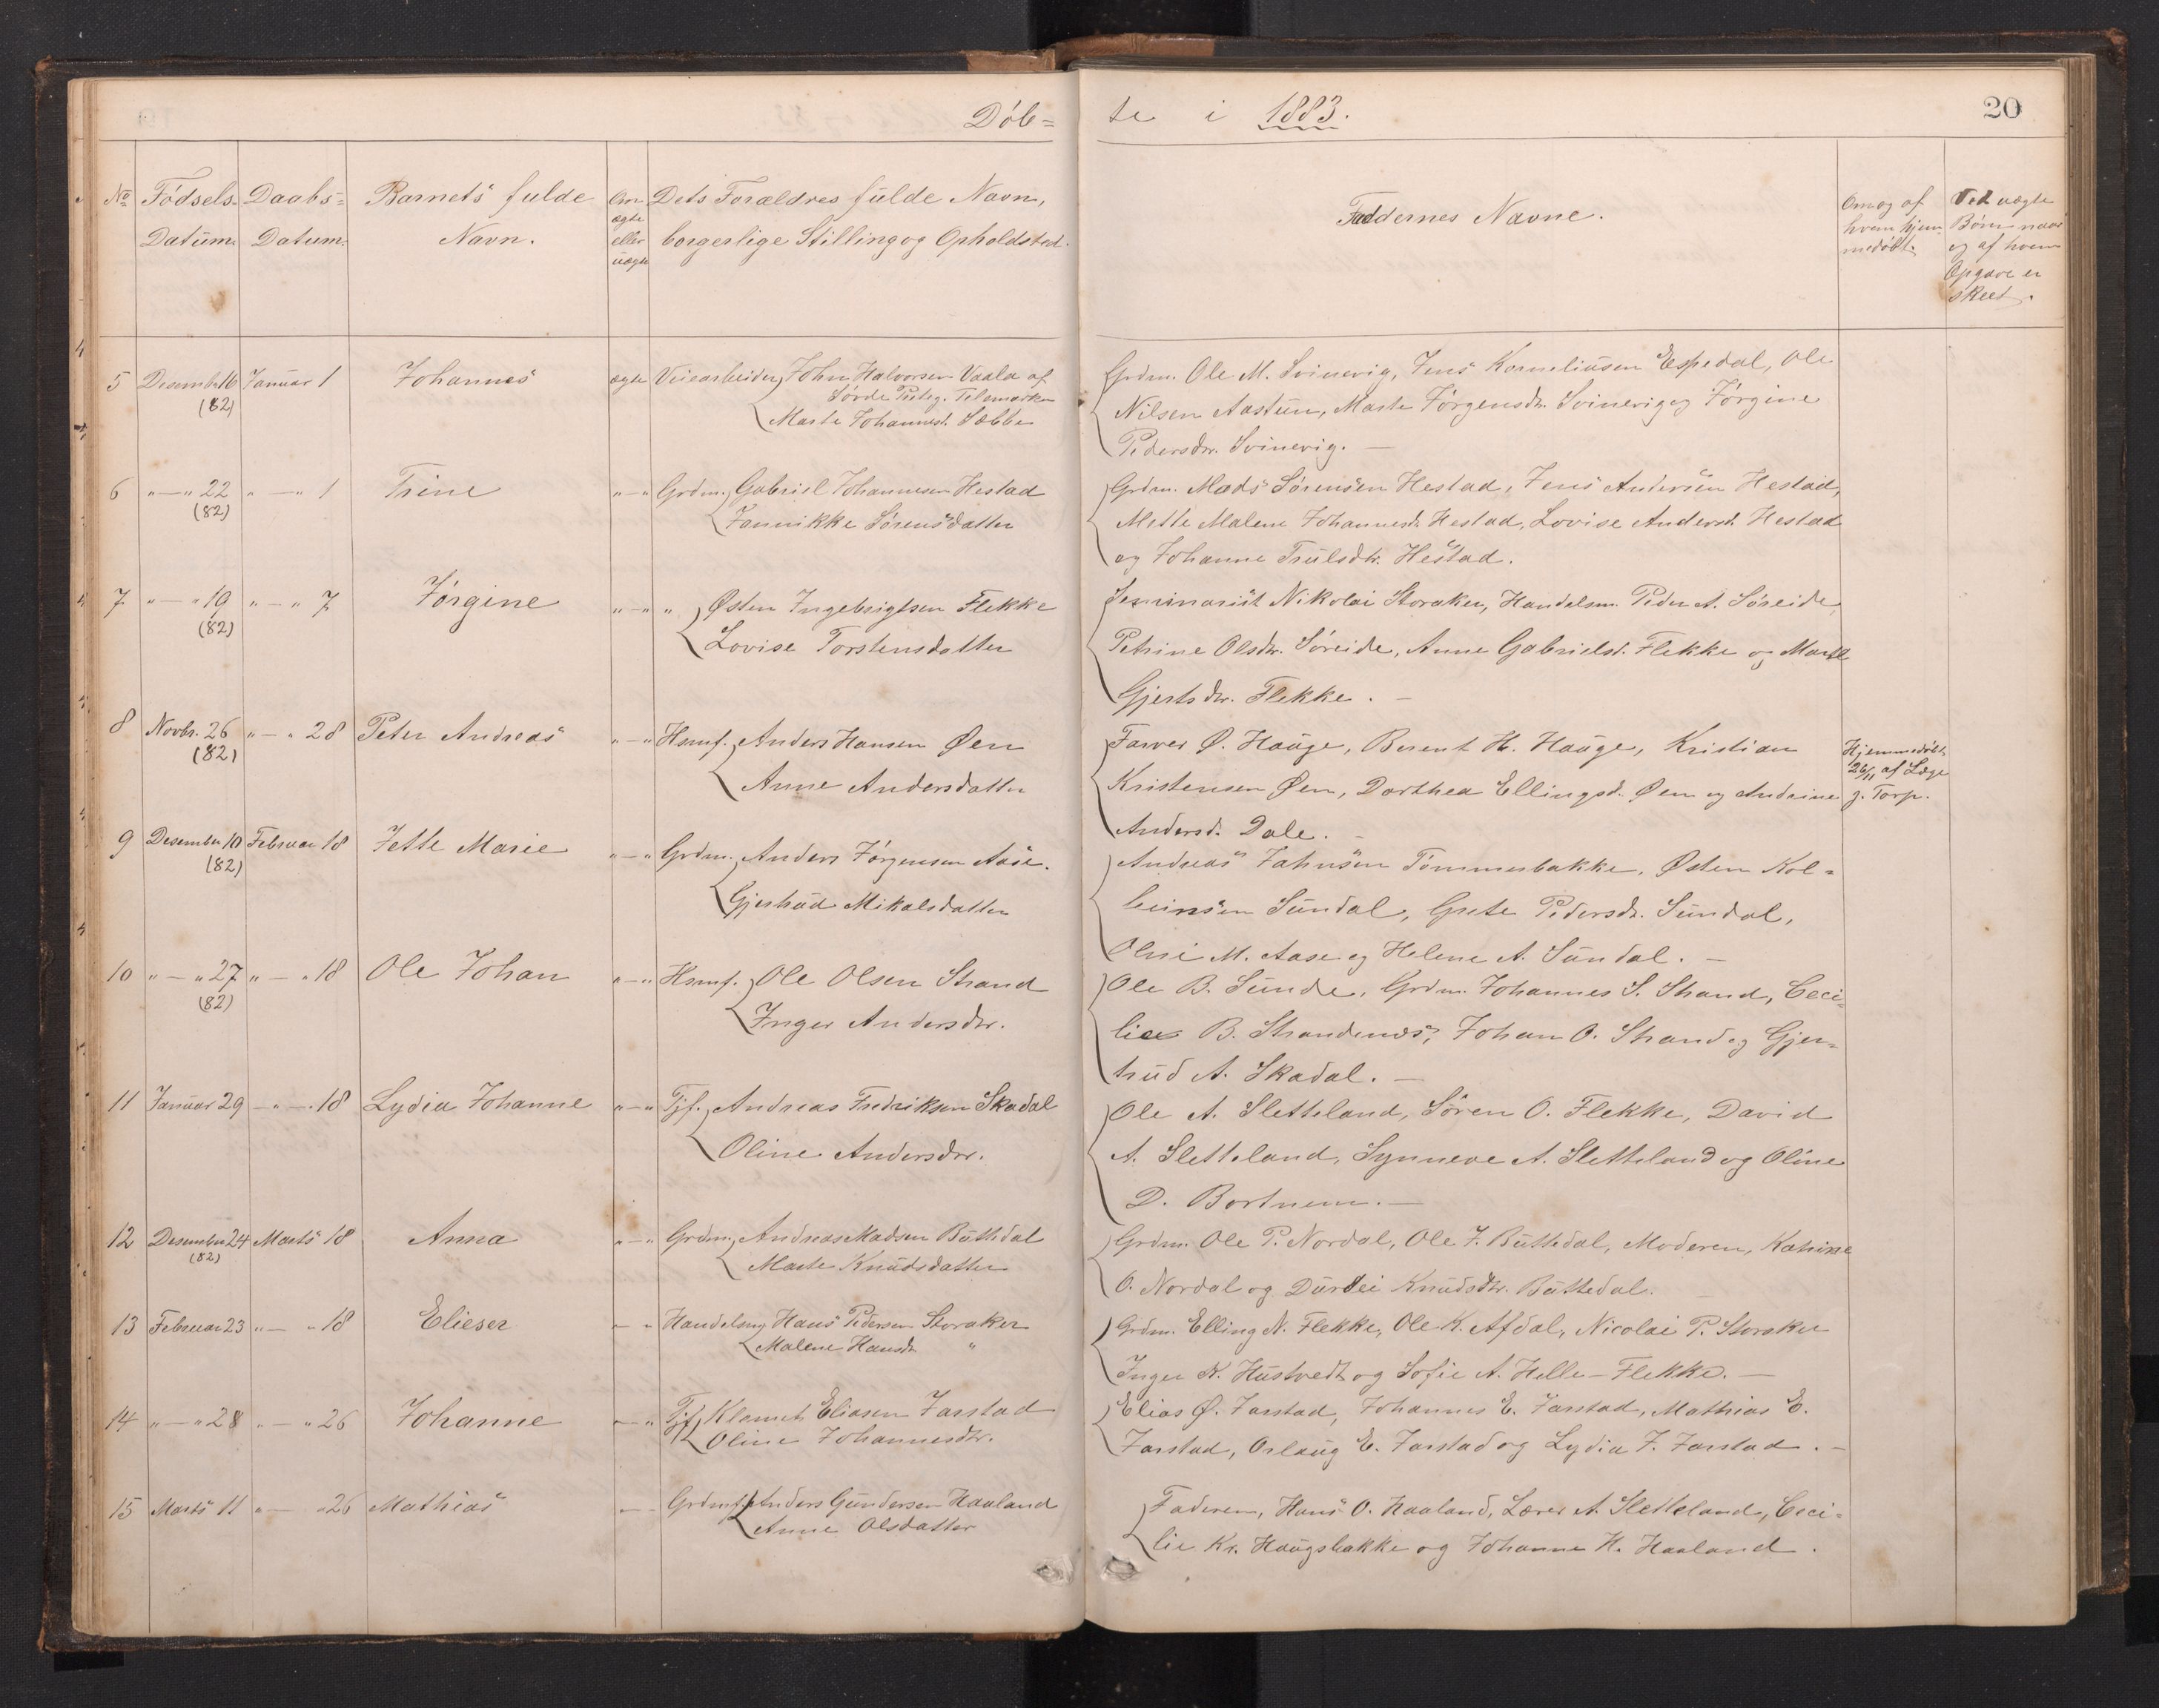 Døb=
te i 1883.
20
No
Fødsels-
Datum.
Daabs=
Datum.
Barnets fulde
Navn.
Om
ægte
eller
uægte
Dets Forældres fulde Navn,
borgerlige Stilling og Opholdsted.
Faddernes Navne.
Om og af
hvem hjem-
medøbt.
Ved uægte
Børn naar
og af hvem
Opgave er
skeet.
5 Desember 16 Januar 1 Johannes ægte Veiearbeider, John Halvorsen Vaala af
(82)
Telemarken
Marte Johannesd. Sæbbe
Grdm. Ole M. Svinevig, Jens Korneliusen Espedal, Ole
Nilsen Aastun, Marte Jørgensdr. Svinevig og Jørgine
Pedersdtr. Svinevig. —
6 " — " 22 " — " 1 Trine " — " Grdm. Gabriel Johannesen Hestad
(82)
Jannikke Sørensdatter
Grdm. Mads Sørensen Hestad, Jens Andersen Hestad,
Mette Malene Johannesd. Hestad, Lovise Andersd. Hestad
og Johanne Trulsdtr. Hestad.
7 " — " 19 " — " 7 Jørgine " — " " Østen Ingebrigtsen Flekke
(82)
Lovise Torstensdatter
Seminarist Nikolai Storaker, Handelsm. Peder A. Søreide,
Petrine Olsdtr. Søreide, Anne Gabrielsd. Flekke og Marte
Gjertsdtr. Flekke. —
8 Novbr. 26 " — " 28 Peter Andreas " — " Hsmf. Anders Hansen Øen
(82)
Anne Andersdatter
Farver Ø. Hauge, Berent H. Hauge, Kristian
Kristensen Øen, Dorthea Ellingsd. Øen og Andrine
Andersd. Dale. —
Hjemmedøbt
26/11 af Læge
J. Torp.
9 Desember 10 Februar 18 Jette Marie " — " Grdm. Anders Jørgensen Aase.
(82)
Gjertrud Mikalsdatter
Andreas Jahnsen Tømmerbakke, Østen Kol=
beinsen Sundal, Grete Pedersdr. Sundal,
M. Aase og Helene A. Sundal. —
10 " — " 27 " — " 18 Ole Johan " — " Hsmf. Ole Olsen Strand
(82)
Inger Andersdtr.
Ole B. Sunde, Grdm. Johannes S. Strand, Ceci-
lie B. Strandenæs, Johan O. Strand og Gjer=
trud A. Skadal. —
11 Januar 29 — " — " 18 Lydia Johanne " — " Tjf. Andreas Fredriksen Skadal
Oline Andersdtr.
Ole A. Sletteland, Søren O. Flekke, David
A. Sletteland, Synneve A. Sletteland og Oline
D. Bortnem. —
12 Desember 24 Marts 18 Anna " — " Grdm. Andreas Madsen Buttedal
(82)
Marte Knudsdatter
Grdm. Ole P. Nordal, Ole J. Buttedal, Moderen, Katrine
O. Nordal og Durdei Knudsdtr. Buttedal. —
13 Februar 23 " — " 18 Elieser " " Handelsm. Hans Pedersen Storaker
Malene Hansdr. "
Grdm. Elling N. Flekke, Ole K. Afdal, Nicolai P. Storaker
Inger K. Hustvedt og Sofie A. Helle-Flekke. —
14 " — " 28 " — " 26 Johanne — " Tjf. Klemet Eliasen Jarstad
Oline Johannesdtr.
Elias Ø. Jarstad, Johannes E. Jarstad, Mathias E.
Jarstad, Oslaug E. Jarstad og Lydia J. Jarstad. —
15 Marts 11 " — " 26 Mathias — Grdmf. Anders Gundersen Haaland
Anne Olsdatter
Faderen, Hans O. Haaland, Lærer A. Sletteland, Ceci=
lie Kr. Haugsbakke og Johanne H. Haaland.